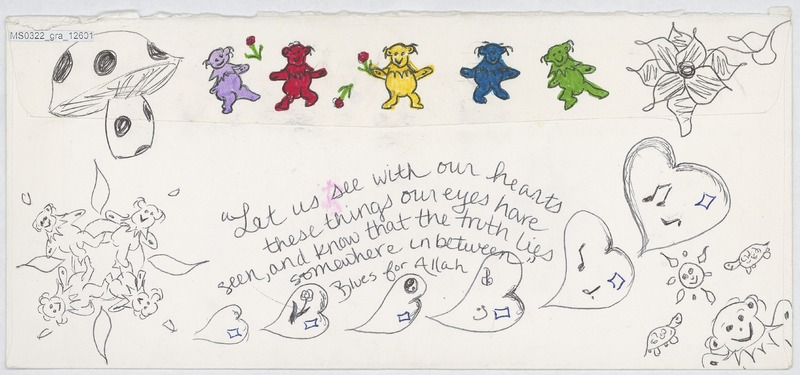 MS0322_gra_12601
"Let us see with our hearts
these things our eyes have
seen, and know that the truth lies
somewhere in between"
Blues for Allah